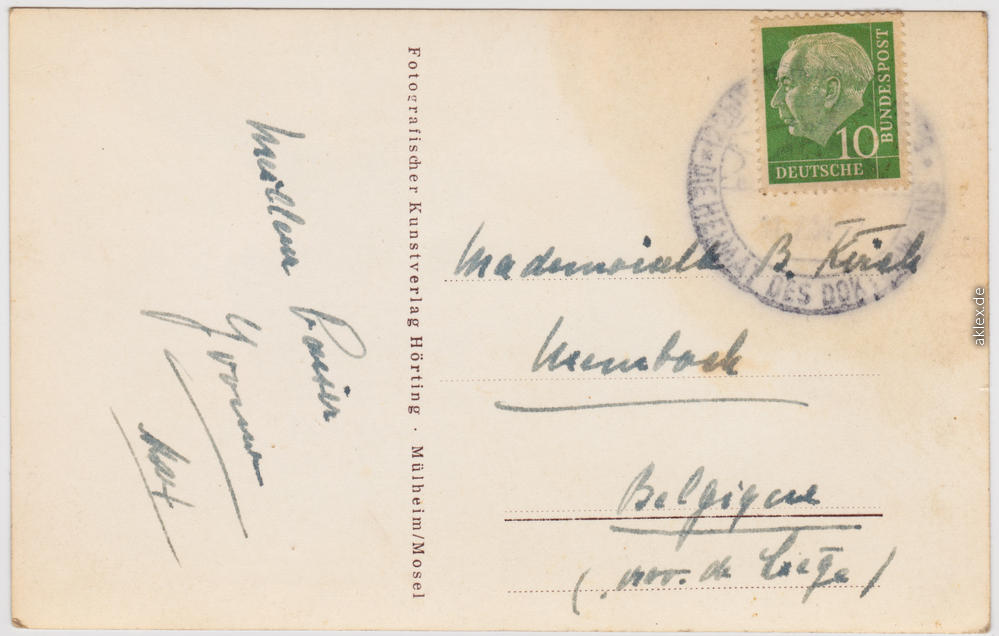 Meilleur
baiser
Yvonne
Fotografischer Kunstverlag Hörting · Mülheim/Mosel
BUNDESPOST
10
DEUTSCHE
DIE HEIMAT DES DOKT
Mademoiselle B.
Membach
Belgique
(prov. de Liège)
aklex.de